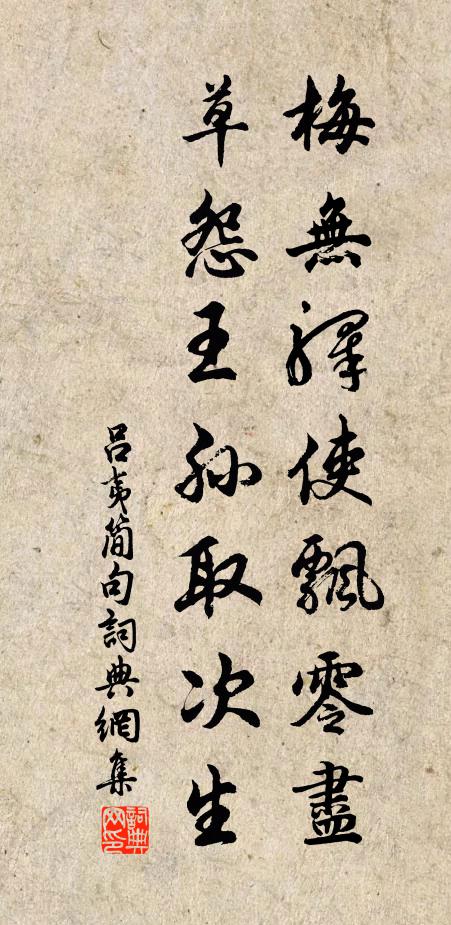 梅無驛使飄零盡
草怨王孫取次生
呂夷簡句詞典網集
詞典網印